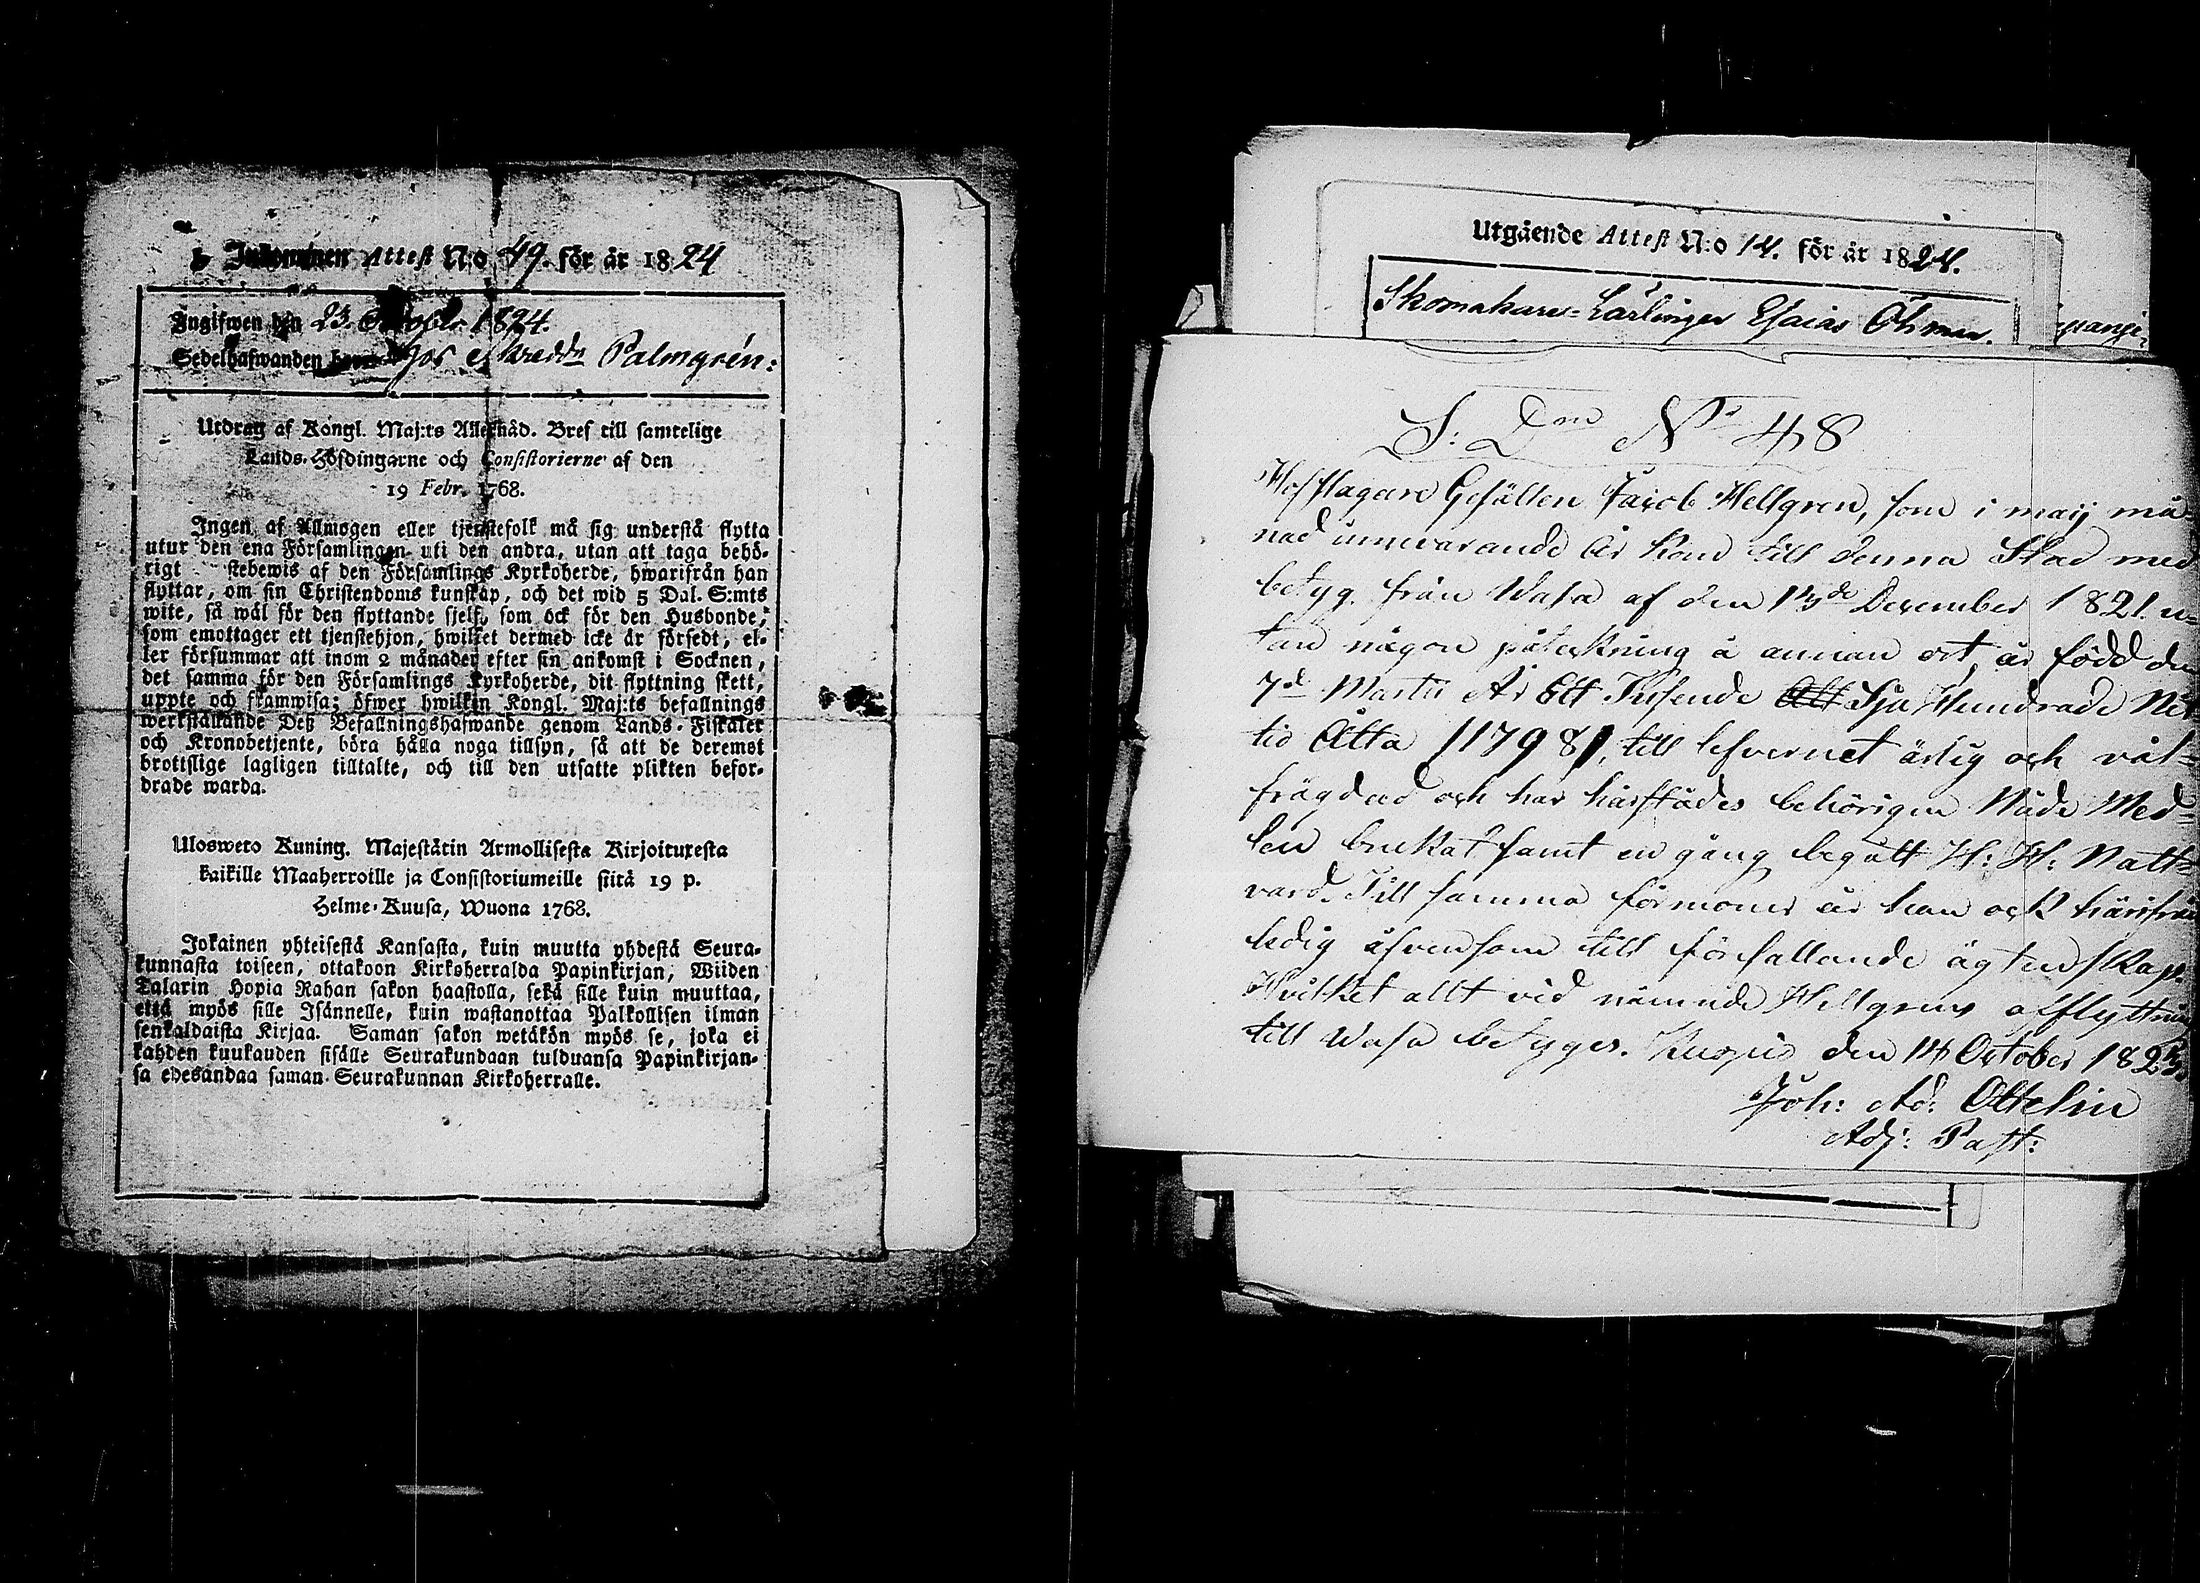 Inkommen Attest N:o 49. för år 1824
Ingifwen den 23. October 1824.
Sedelhafwanden Palmgrén:
Utdrag af Kongl. Maj:ts Allernåd. Bref till samtelige
Lands-Höfdingarne och Consistorierne af den
19 Febr. 1768.
Ingen af Allmogen eller tjenstefolk må sig understå flytta
utur den ena Församlingen uti den andra, utan att taga behö-
rigt stebewis af den Församlings Kyrkoherde, hwarifrån han
flyttar, om sin Christendoms kunskap, och det wid 5 Dal. S:mts
wite, så wäl för den flyttande sjelf, som öck för den Husbonde,
som emottager ett tjenstehjon, hwilket dermed icke är försedt, el-
ler försummar att inom 2 månader efter sin ankomst i Socknen,
det samma för den Församlings Kyrkoherde, dit flyttning skett,
uppte och framwisa; öfwer hwilkin Kongl. Maj:ts befallnings
werkställande Deß Befallningshafwande genom Lands-Fiskaler
och Kronobetjente, böra hålla noga tillsyn, så att de deremot
brottslige lagligen tilltalte, och till den utsatte plikten befor-
drade warda.
Ulosweto Kuning. Majestätin Armollisesta Kirjoituxesta
kaikille Maaherroille ja Consistoriumeille siitä 19 p.
Helme-Kuusa, Wuona 1768.
Jokainen yhteisestä Kansasta, kuin muutta yhdestä Seura-
kunnasta toiseen, ottakoon Kirkoherralda Papinkirjan, Wiiden
Talarin Hopia Rahan sakon haastolla, sekä sille kuin muuttaa,
että myös sille Isännelle, kuin wastanottaa Palkollisen ilman
senkaldaista Kirjaa. Saman sakon wetäkön myös se, joka ei
kahden kuukauden sisälle Seurakundaan tulduansa Papinkirjan-
sa edesandaa saman Seurakunnan Kirkoherralle.
Utgående Attest N:o 14. för år 1824.
Skomakare-Lärlingen Esaias Öhman.
S: D N 48
Hofslagare Gesällen Jacob Hellgren, som i maij må-
nad innevarande år kom till denna Stad med
betyg från Wasa af den 13de December 1821. u-
tan någon påteckning å annan ort, är född den
7de Martii År Ett Tusende Ått Sju Hundrade Nit-
tio Åtta /1798/, till lefvernet ärlig och väl-
frägdad och har härstädes behörigen Nåde Med-
len brukat samt en gång begått H: H: Natt-
vard. Till samma förmoner är han ock härifrån
ledig äfvensom till förefallande ägtenskap.
Hvilket allt vid nämnde Hellgrens afflyttning
till Wasa betyges. Kuopio den 14 October 1823.
Joh: Ad: Ottelin
Adj: Past: